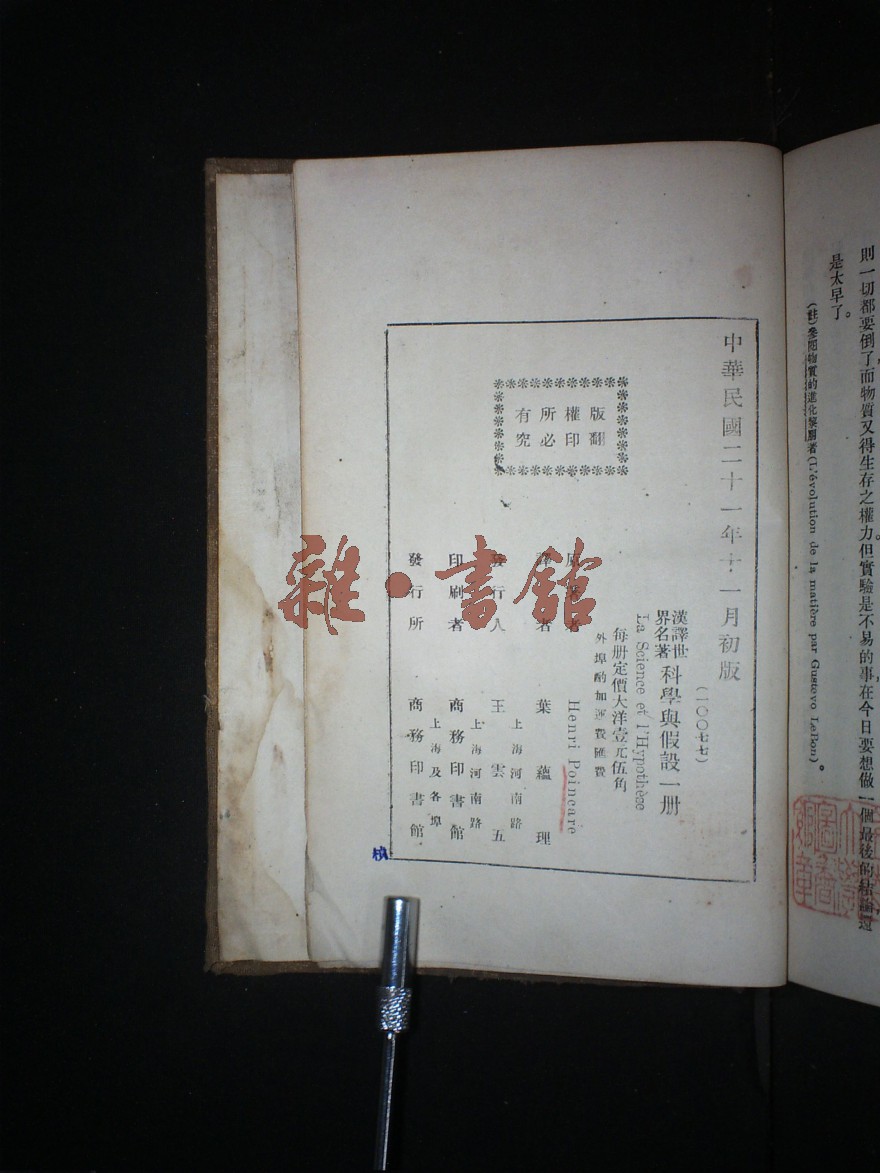 則一切都要倒了而物質又得生存之權力但實驗是不易的事在今日要想做一個最後的結論還
是太早了。
(L'évolution de la matière par Gustave LeBon)。
中華民國二十一年十一月初版
(一〇〇七七)
漢譯世界名著 科學與假設一册
La Science et l'Hypothèse
每册定價大洋壹元伍角
外埠酌加運費匯費
版權所有
翻印必究
原著者 Henri Poincaré
譯者 葉蘊理
上海河南路
發行人 王雲五
上海河南路
印刷者 商務印書館
上海及各埠
發行所 商務印書館
雜·書館